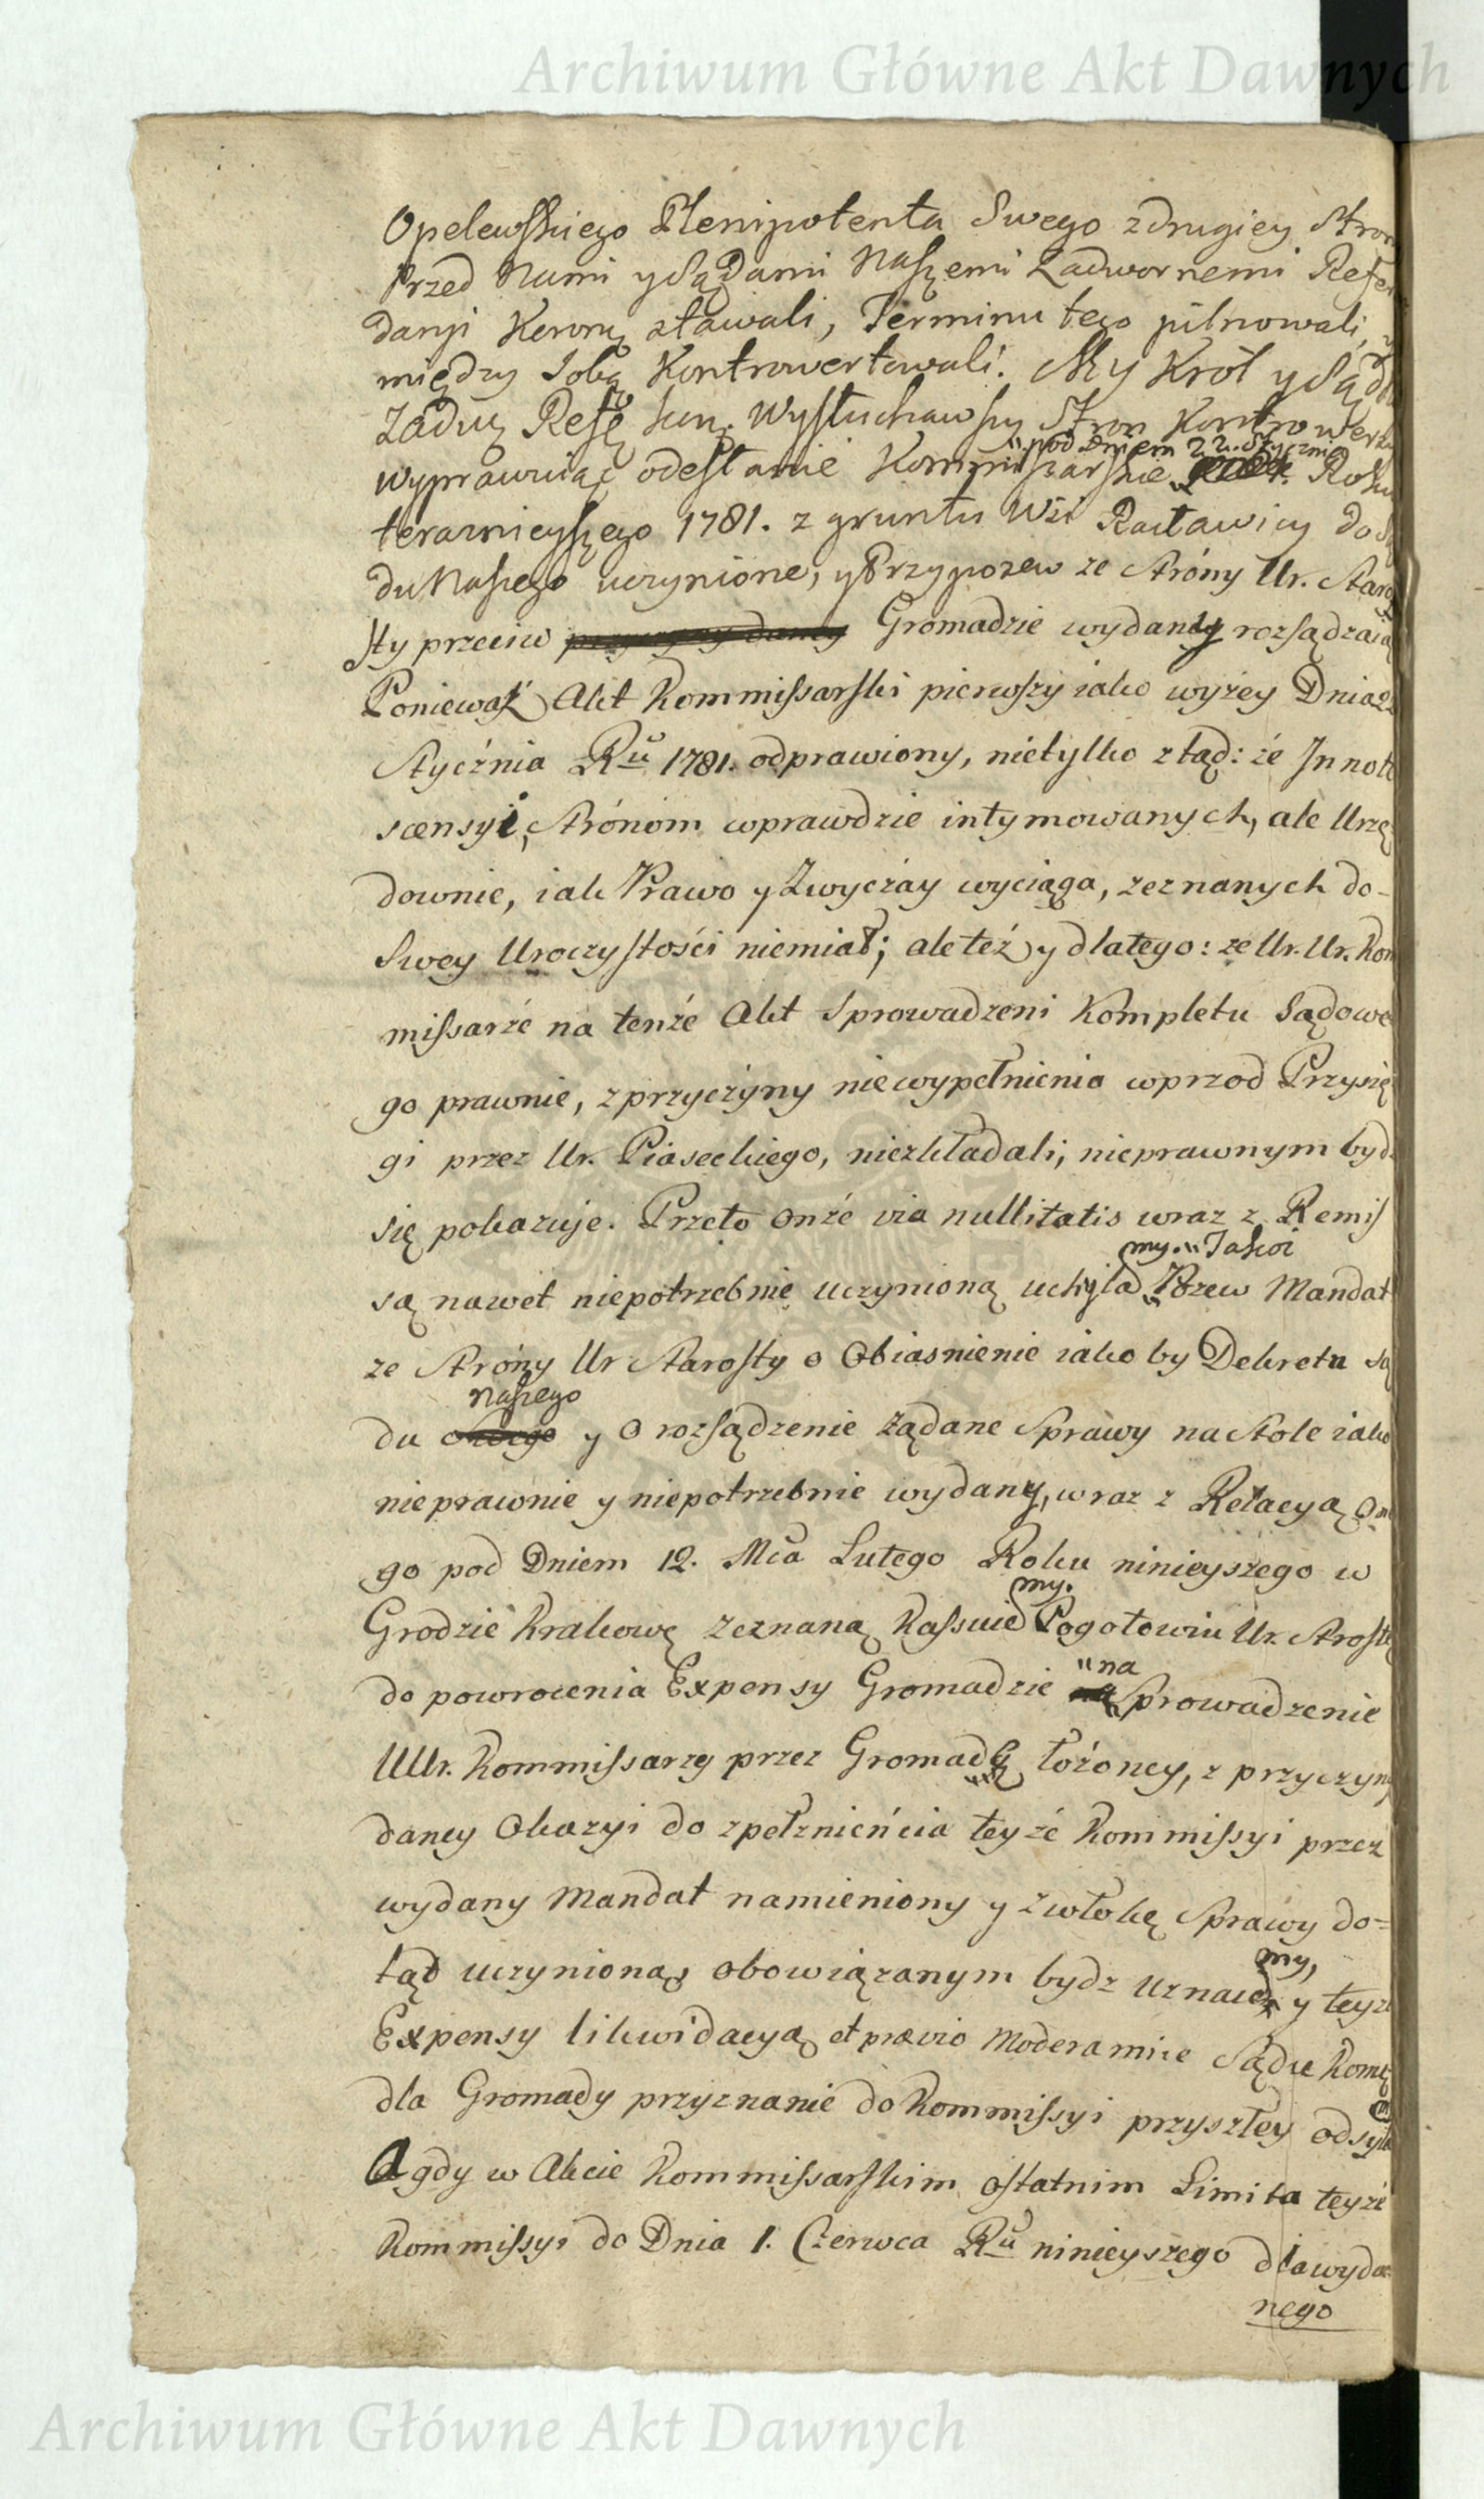 Archiwum Główne Akt Dawnych
Opelewskiego Plenipotenta Swego z drugiey Stron
Przed Nami y Sądami Naszemi Zadwornemi Refer
daryi Koronę stawali, Terminu tego pilnowali, y
między Sobą Kontrowertowali. My Król y Sąd
Zadwę Refę Kon. Wysłuchawszy Stron Kontrowersy
"pod Dniem 22. Stycznia
wyprawuiąc odesłanie Kommissarskie Roku
teraznieyszego 1781. z gruntu Wsi Racławicy do Są
du Naszego uczynione, y Przypozew ze Stróny Ur. Staro
sty przeciw Gromadzie wydany rozsądzaią
Poniewaź Akt Kommissarski pierwszy iako wyżey Dnia 22
Stycźnia Ru 1781. odprawiony, nietylko ztąd: źe Innote
scensyi, Strónom wprawdzie intymowanych, ale Urzę
downie, iak Prawo y Zwyczáy wyciąga, zeznanych do-
Swey Uroczystości niemiał; ale też y dlatego: ze Ur. Ur. Kom
missarźe na tenźe Akt Sprowadzeni Kompletu Sądowe
go prawnie, z przyczyny niewypełnienia wprzod Przysię
gi przez Ur. Piaseckiego, niezkładali; nieprawnym bydź
się pokazuje. Przeto Onźe via nullitatis wraz z Remis
my. "Jakoi
są nawet niepotrzebnie uczynioną uchyla Pozew Mandat
ze Stróny Ur Starosty o Obiasnienie iako by Dekretu Są
naszego
du y o rozsądzenie żądane Sprawy na Stole iako
nieprawnie y niepotrzebnie wydany, wraz z Relacyą One
go pod Dniem 12. Mca Lutego Roku ninieyszego w
my.
Grodzie Krakowę zeznaną Kassuie Pogotowiu Ur. Strostę
do powrocenia Expensy Gromadzie "na Sprowadzenie
UUr. Kommissarzy przez Gromadę łożoney, z przyczyny
daney Okazyi do zpełznieńcia teyźe Kommissyi przez
wydany Mandat namieniony y zwłokę Sprawy do=
my,
tąd uczynioną, obowiązanym bydz uznaie y teyze
Expensy likwidacyą et prævio Moderamine Sądu Komę
dla Gromady przyznanie do Kommissyi przyszłey odsyła
A gdy w Akcie Kommissarskim ostatnim Limita teyźe
Kommissyi do Dnia 1. Czerwca Ru ninieyszego dla wyda
nego
Archiwum Główne Akt Dawnych